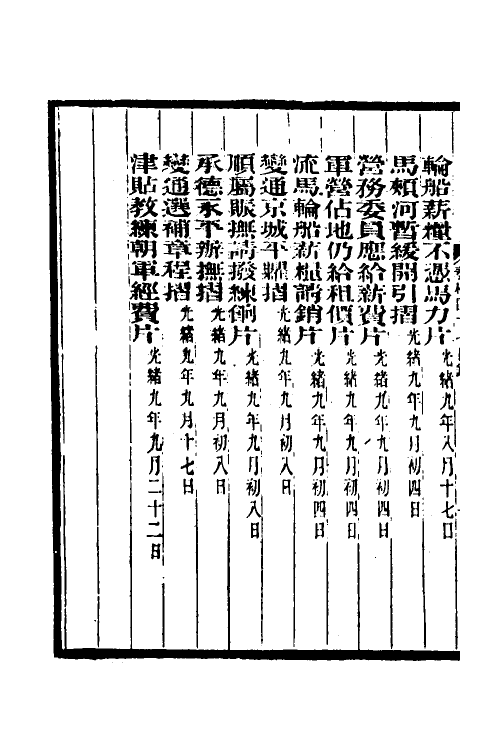 輪船薪糧不憑馬力片光緒九年八月十七日
馬頰河暫緩開引摺光緒九年九月初四日
營務委員應給薪費片光緒九年九月初四日
軍營佔地仍給租價片光緒九年九月初四日
流馬輪船薪糧請銷片光緒九年九月初四日
變通京城平糶摺光緒九年九月初八日
順屬賑撫請撥練餉片光緒九年九月初八日
承德永平辦撫摺光緒九年九月初八日
變通選補章程摺光緒九年九月十七日
津貼教練朝軍經費片光緒九年九月二十二日